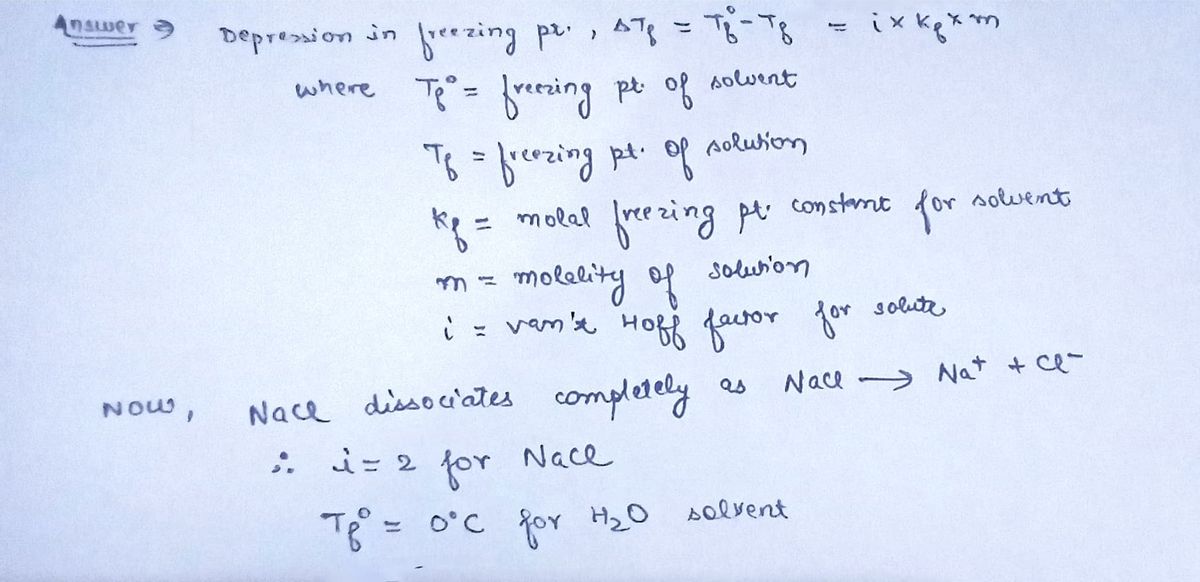 Answer → Depression in freezing pt. , ΔTf = Tf° - Tf = i × Kf × m
where Tf° = freezing pt. of solvent
Tf = freezing pt. of solution
Kf = molal freezing pt. constant for solvent
m = molality of solution
i = van't Hoff factor for solute
Now, NaCl dissociates completely as NaCl → Na⁺ + Cl⁻
∴ i = 2 for NaCl
Tf° = 0°C for H₂O solvent